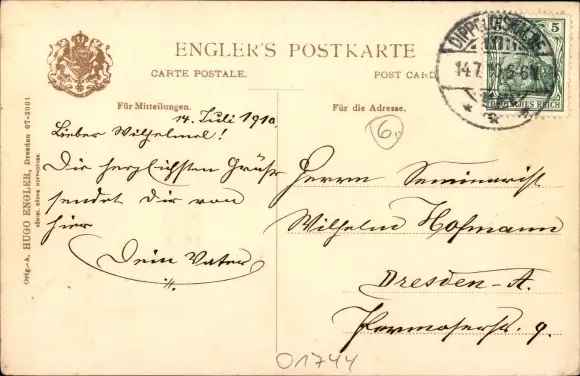 ENGLER'S POSTKARTE
CARTE POSTALE.
POST CARD
Für Mitteilungen.
Für die Adresse.
14. Juli 1910.
Lieber Wilhelmel!
Die herzlichsten Grüße
sendet Dir von
hier
Dein Vater
Herrn Seminarist
Wilhelm Hofmann
Dresden-A.
Permoserstr. 9.
6,
01744
DIPPOLDISWALDE
14.7.10. 5-6N
5
DEUTSCHES REICH
Orig.-A. HUGO ENGLER, Dresden 07-2001